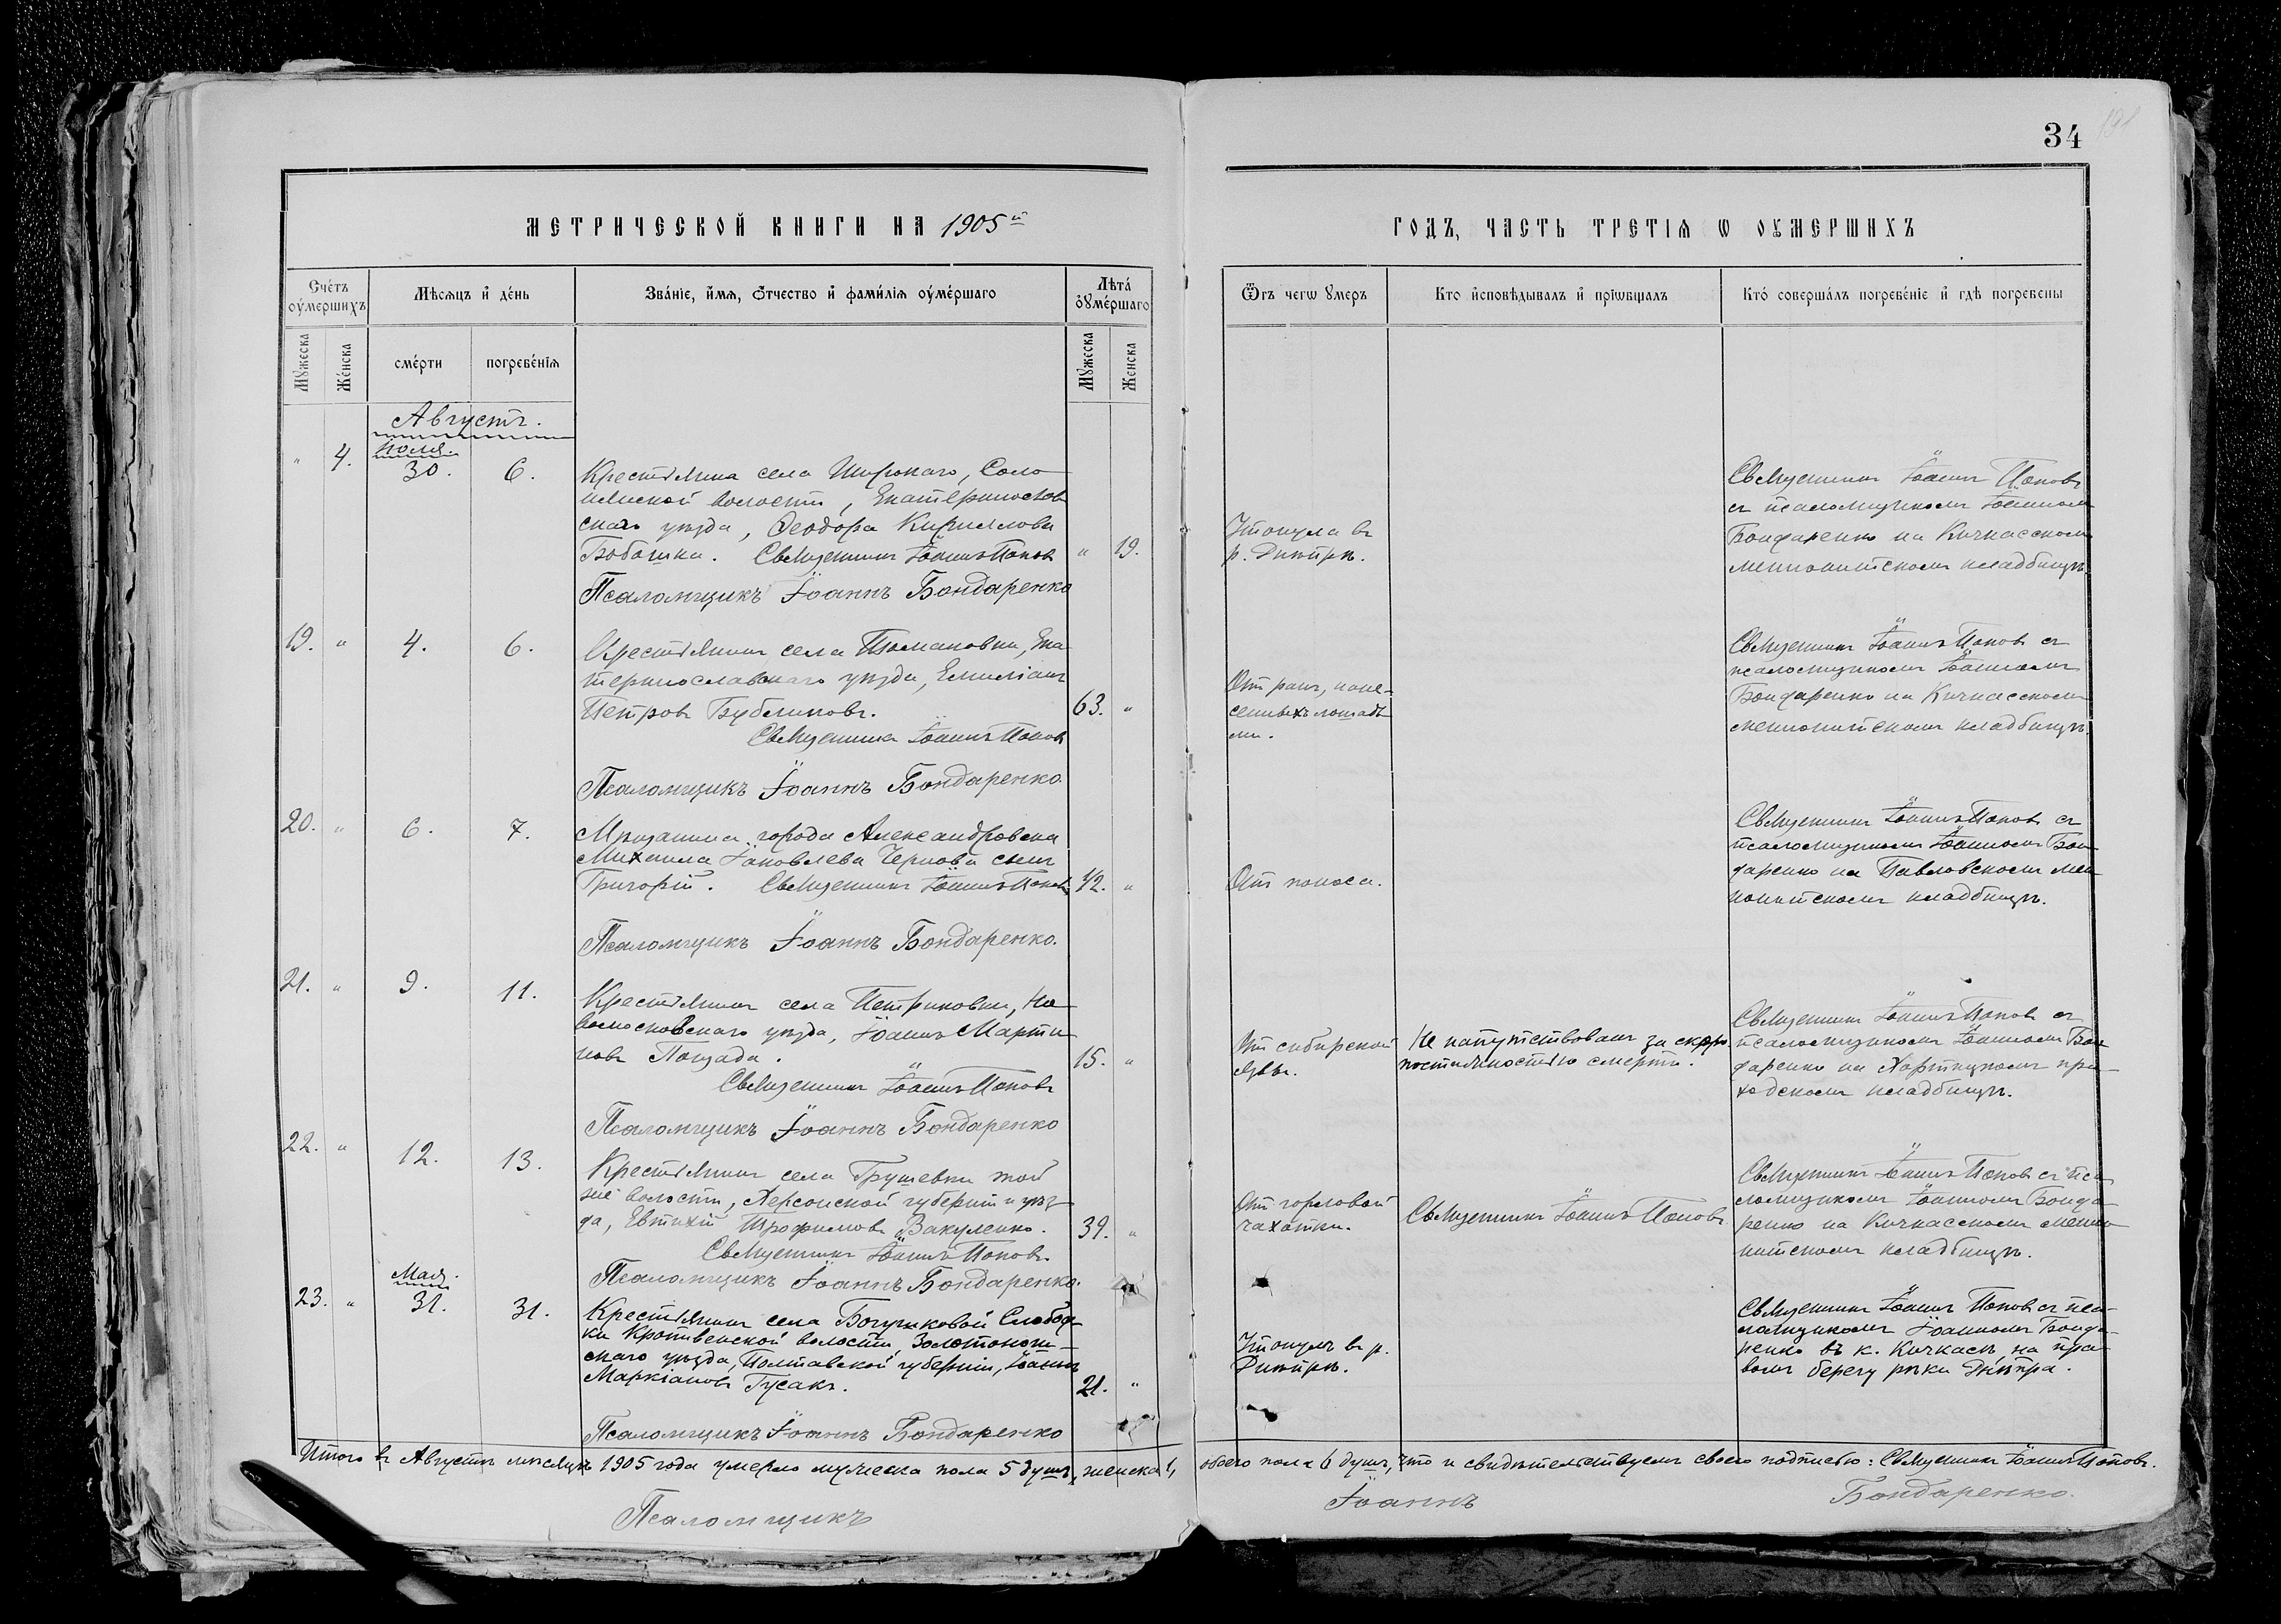 34
МЕТРИЧЕСКОЙ КНИГИ НА 1905й
ГОДЪ, ЧАСТЬ ТРЕТІѦ Ѡ ОУМЕРШИХЪ
Сче́тъ оу҆ме́ршихъ
Мѣсяцъ и҆ де́нь
Зва́ніе, и҆́мя, ѻ҆́тчество и҆ фами́лія оу҆ме́ршаго
Лѣта̀ оу҆ме́ршаго
Ѿ чегѡ ᲂумеръ
Кто и҆сповѣ́дывалъ и҆ прїѡбщалъ
Кто̀ соверша́лъ погребе́ніе и҆ гдѣ погребены
Мꙋжеска
Же́нска
сме́рти
погребе́нія
Мꙋжеска
Женска
Августъ.
Іюля.
" 4. 30. 6.
Крестьянина села Широкаго, Соло-
нянской волости, Екатеринослав
скаго уѣзда, Ѳеодора Кириллова
Бабашка. Священникъ Іоаннъ Поповъ
" 19.
Псаломщикъ Іоаннъ Бондаренко
Утонула въ
р. Днѣпрѣ.
Священникъ Іоаннъ Поповъ
съ псаломщикомъ Іоанномъ
Бондаренко на Кичкасскомъ
меннонитскомъ кладбищѣ.
19. " 4. 6.
Крестьянинъ села Томаковки, Ека
теринославскаго уѣзда, Емиліанъ
Петровъ Бубликовъ.
63. "
Священникъ Іоаннъ Поповъ
Псаломщикъ Іоаннъ Бондаренко
Отъ ранъ, нане-
сенныхъ лошадь
ми.
Священникъ Іоаннъ Поповъ съ
псаломщикомъ Іоанномъ
Бондаренко на Кичкасскомъ
меннонитскомъ кладбищѣ.
20. " 6. 7.
Мѣщанина города Александровска
Михаила Іаковлева Чернова сынъ
Григорій. Священникъ Іоаннъ Поповъ
1/2. "
Псаломщикъ Іоаннъ Бондаренко.
Отъ поноса.
Священникъ Іоаннъ Поповъ съ
псаломщикомъ Іоанномъ Бон-
даренко на Павловскомъ мен-
нонитскомъ кладбищѣ.
21. " 9. 11.
Крестьянинъ села Петриковки, Но
вомосковскаго уѣзда, Іоаннъ Марти
новъ Пощада.
15. "
Священникъ Іоаннъ Поповъ
Псаломщикъ Іоаннъ Бондаренко
Отъ сибирской
язвы.
Не напутствованъ за скоро
постижностью смерти.
Священникъ Іоаннъ Поповъ съ
псаломщикомъ Іоанномъ Бон
даренко на Хортицкомъ при-
ходскомъ кладбищѣ.
22. " 12. 13.
Крестьянинъ села Грушевки той
же волости, Херсонской губерніи и уѣз
да, Евтихій Трофимовъ Вакуленко.
39. "
Священникъ Іоаннъ Поповъ.
Псаломщикъ Іоаннъ Бондаренко.
Отъ горловой
чахотки.
Священникъ Іоаннъ Поповъ.
Священникъ Іоаннъ Поповъ съ пса
ломщикомъ Іоанномъ Бонда
ренко на Кичкасскомъ менно
нитскомъ кладбищѣ.
Мая.
23. " 31. 31.
Крестьянинъ села Богушковой Слобод-
ки Кропивенской волости, Золотонош-
скаго уѣзда, Полтавской губерніи, Іоаннъ
Маркіановъ Гусакъ.
21. "
Псаломщикъ Іоаннъ Бондаренко
Утонулъ въ р.
Днѣпрѣ.
Священникъ Іоаннъ Поповъ съ пса-
ломщикомъ Іоанномъ Бонда-
ренко въ к. Кичкасъ, на пра-
вомъ берегу рѣки Днѣпра.
Итого въ Августѣ мѣсяцѣ 1905 года умерло мужеска пола 5 душъ, женска 1, обоего пола 6 душъ, что и свидѣтельствуемъ своею подписью: Священникъ Іоаннъ Поповъ.
Псаломщикъ Іоаннъ Бондаренко.